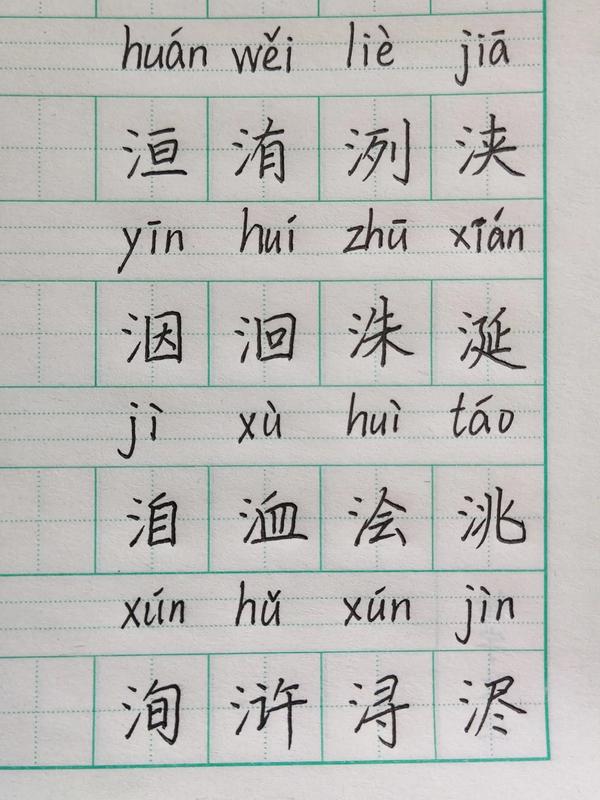 huán wěi liè jiā
洹 洧 洌 浃
yīn huí zhū xián
洇 洄 洙 涎
jì xù huì táo
洎 洫 浍 洮
xún hǔ xún jìn
洵 浒 浔 浕